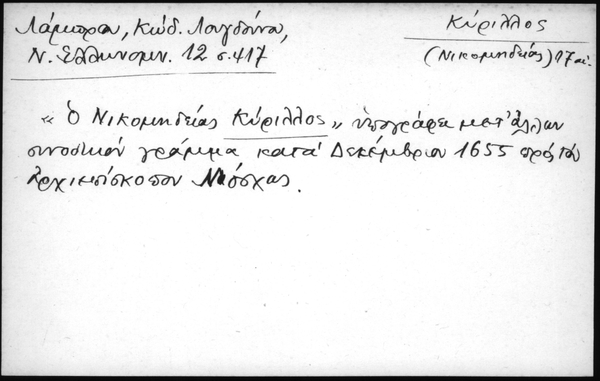 Λάμπρου, Κώδ. Λογδίνου,
Ν. Ἑλληνομν. 12 σ. 417
Κύριλλος
(Νικομηδείας) 17 αἰ.
« Ὁ Νικομηδείας Κύριλλος » ὑπογράφει μετ' ἄλλων
συνοδικόν γράμμα κατά Δεκέμβριον 1655 πρός τόν
ἀρχιεπίσκοπον Μόσχας.